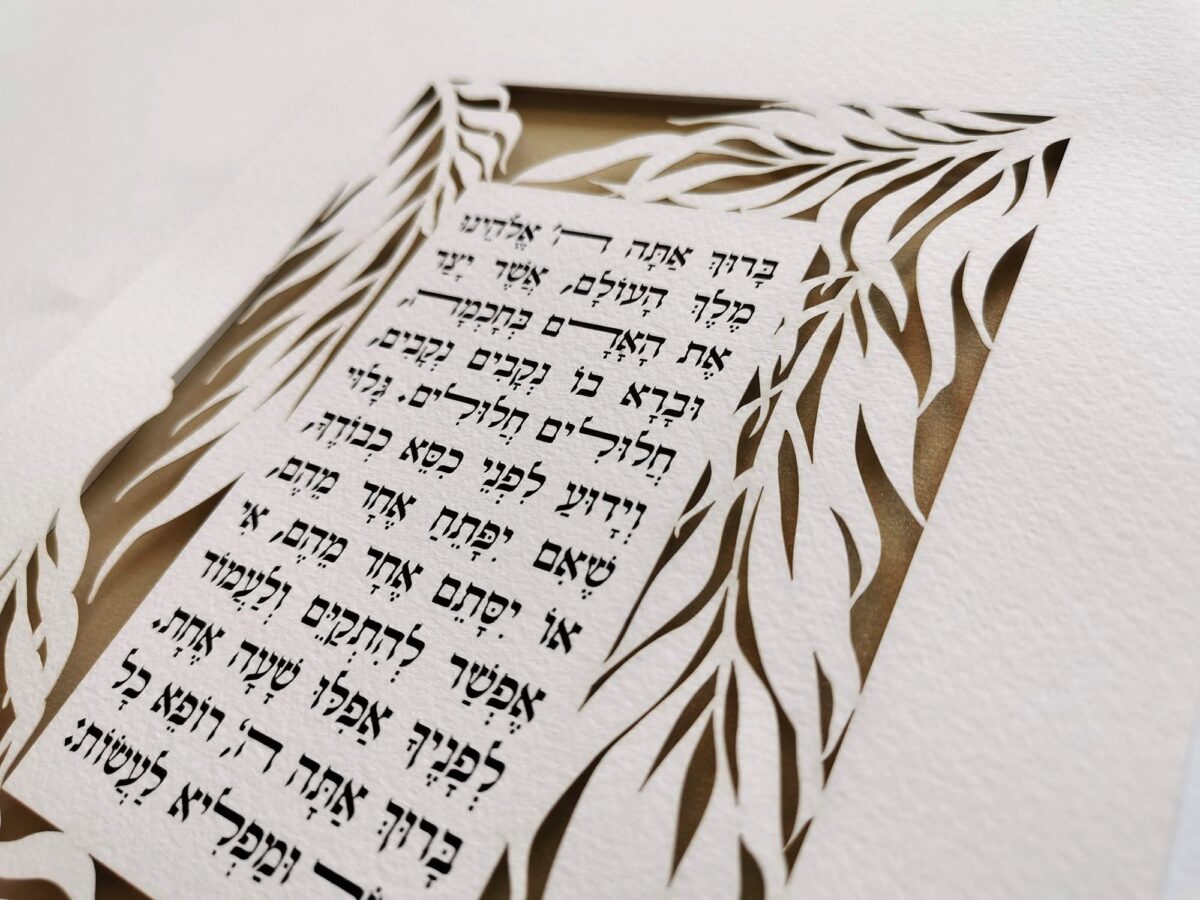 בָּרוּךְ אַתָּה ה׳ אֱלֹהֵינוּ
מֶלֶךְ הָעוֹלָם, אֲשֶׁר יָצַר
אֶת הָאָדָם בְּחָכְמָה,
וּבָרָא בוֹ נְקָבִים נְקָבִים,
חֲלוּלִים חֲלוּלִים. גָּלוּי
וְיָדוּעַ לִפְנֵי כִסֵּא כְבוֹדֶךָ,
שֶׁאִם יִפָּתֵחַ אֶחָד מֵהֶם,
אוֹ יִסָּתֵם אֶחָד מֵהֶם, אִי
אֶפְשַׁר לְהִתְקַיֵּם וְלַעֲמוֹד
לְפָנֶיךָ אַפִלּוּ שָׁעָה אֶחָת.
בָּרוּךְ אַתָּה ה׳, רוֹפֵא כָל
וּמַפְלִיא לַעֲשׂוֹת: